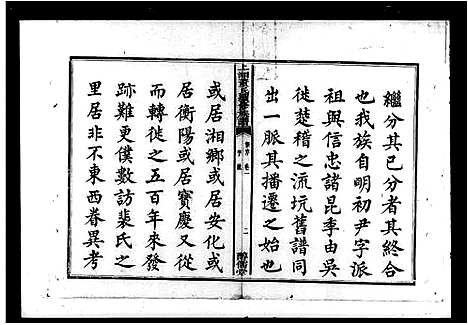 繼分其已分者其終合
也我族自明初尹字派
祖興信忠諸昆季由吳
徙楚稽之流坑舊譜同
出一脈其播遷之始也
或居湘鄉或居安化或
居衡陽或居寶慶又從
而轉徙之五百年來發
跡難更僕數訪裴氏之
里居非不東西眷異考